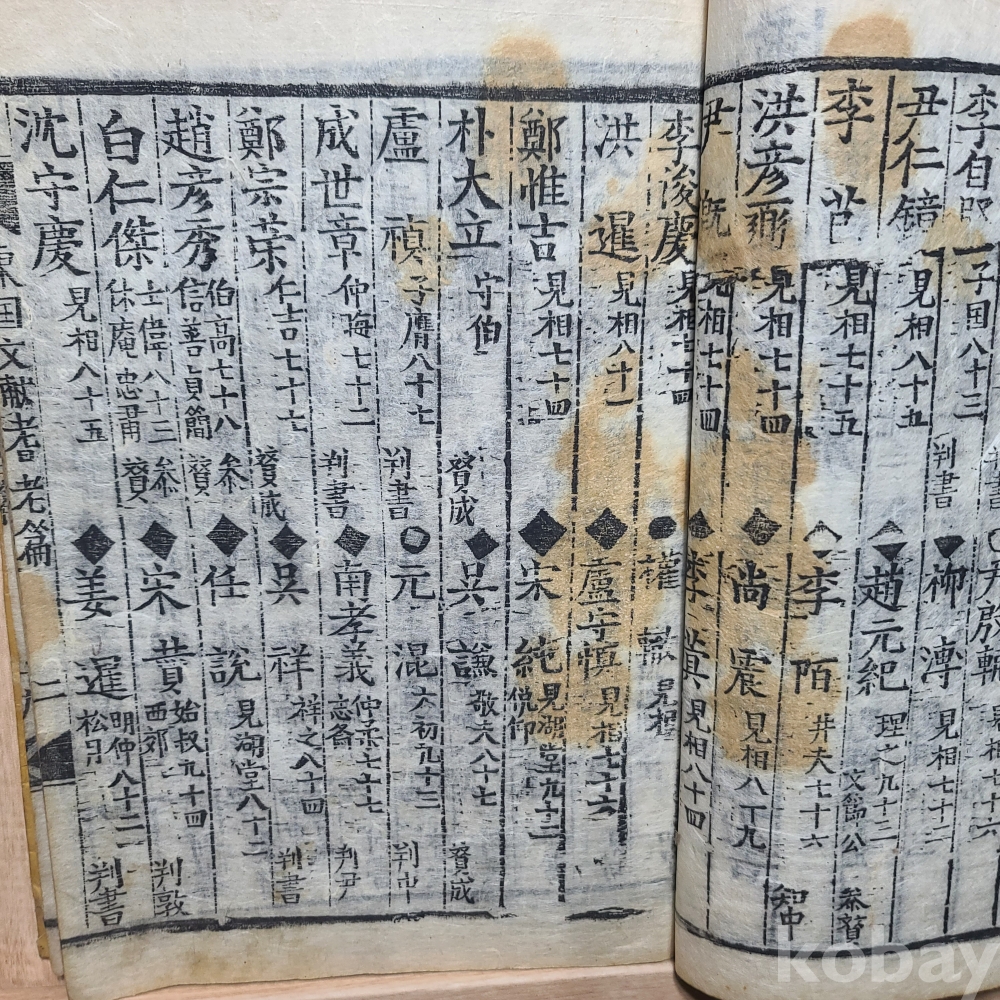 李自
子国八十三
尹殷輔
尹仁鏡
見相八十五
判書
柳溥
見相七十二
李芑
見相七十五
趙元紀
理之九十三
文節公
叅賛
洪彦弼
見相七十四
李陌
井夫七十六
知中
尹漑
見相七十四
尚震
見相八十九
李浚慶
見相七十四
李蓂
見相八十四
洪暹
見相八十一
權轍
見相
鄭惟吉
見相七十四
盧守慎
見相七十六
朴大立
守伯
賛成
宋純
見湖堂九十二
盧禛
子膺八十七
判書
吳謙
敬六八十七
賛成
成世章
仲晦七十二
判書
元混
太初九十三
判中
鄭宗荣
仁吉七十七
賛成
南孝義
仲柔七十七
忘斋
判尹
趙彦秀
伯高七十八
信善貞簡
叅賛
吳祥
祥之八十四
判書
白仁傑
士偉八十三
休庵忠肅
叅賛
任說
見湖堂八十二
沈守慶
見相八十五
宋賛
始叔九十四
西郊
判敦
姜暹
明仲八十二
松月
判書
東国文献耆老篇
二
kobay